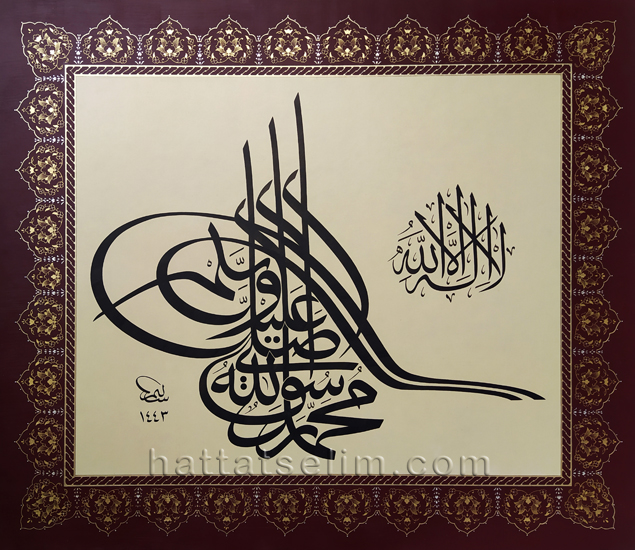 لا إله إلا الله
محمد رسول الله صلى الله عليه وسلم
سليم
١٤٤٣
hattatselim.com